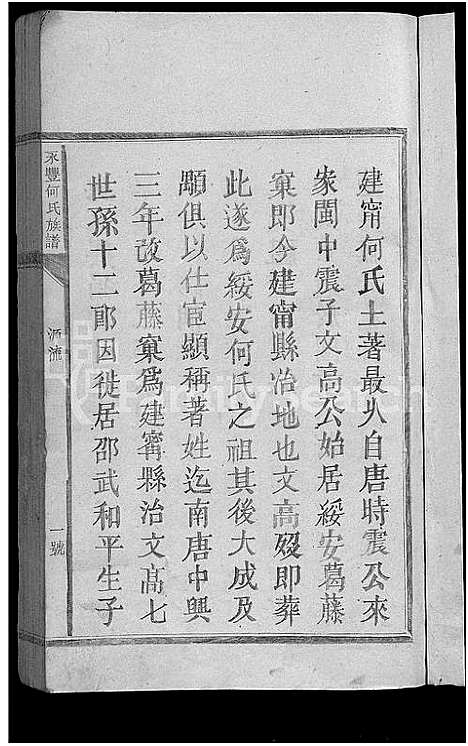 建甯何氏土著最久自唐時震公來
家閩中震子文高公始居綏安葛藤
窠即今建甯縣治地也文高歿即葬
此遂爲綏安何氏之祖其後大成及
顒俱以仕宦顯稱著姓迄南唐中興
三年改葛藤窠爲建甯縣治文高七
世孫十二郎因徙居邵武和平生子
永豐何氏族譜
源流
一號
FamilySearch